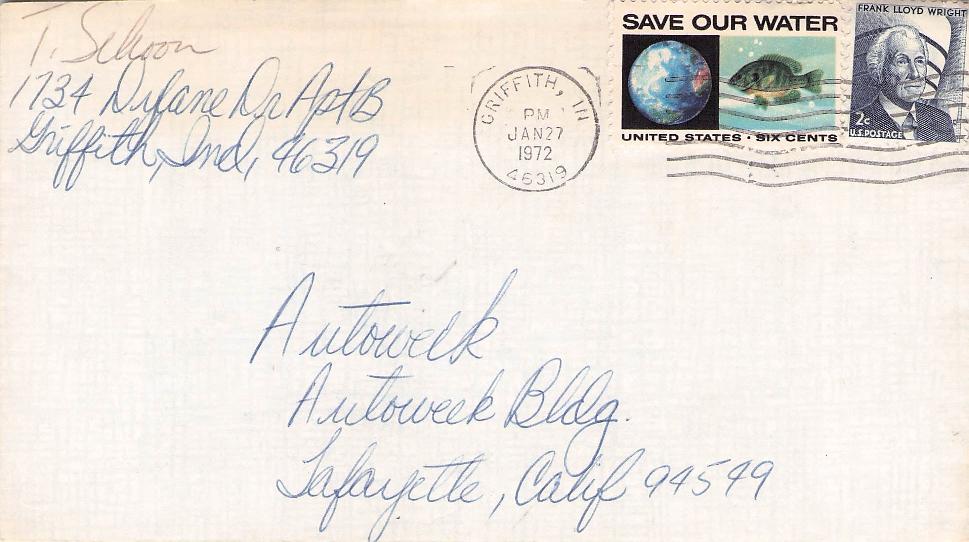 T. Schoon
1734 Dylane Dr Apt B
Griffith, Ind, 46319
GRIFFITH, IN
PM
JAN 27
1972
46319
SAVE OUR WATER
UNITED STATES · SIX CENTS
FRANK LLOYD WRIGHT
2c
U.S. POSTAGE
Autoweek
Autoweek Bldg.
Lafayette, Calif 94549